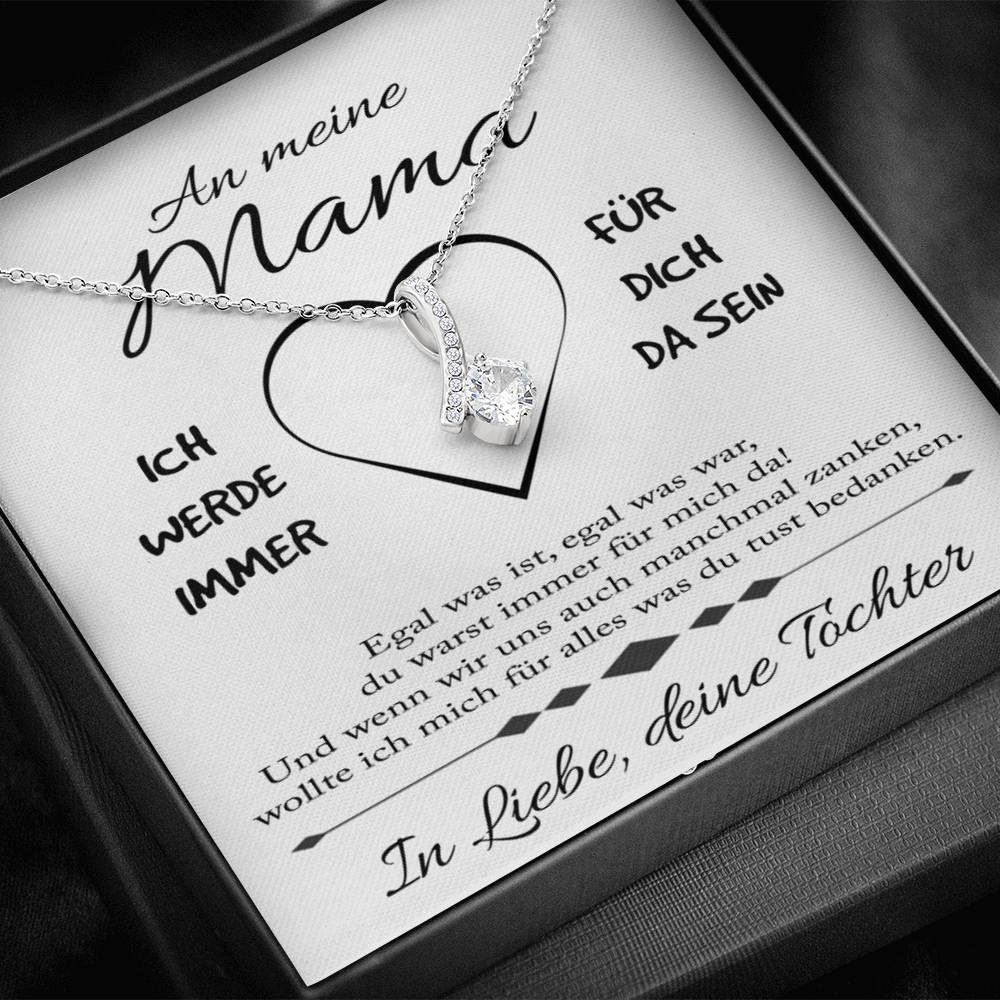 An meine
Mama
ICH
WERDE
IMMER
FÜR
DICH
DA SEIN
Egal was ist, egal was war,
du warst immer für mich da!
Und wenn wir uns auch manchmal zanken,
wollte ich mich für alles was du tust bedanken.
In Liebe, deine Tochter